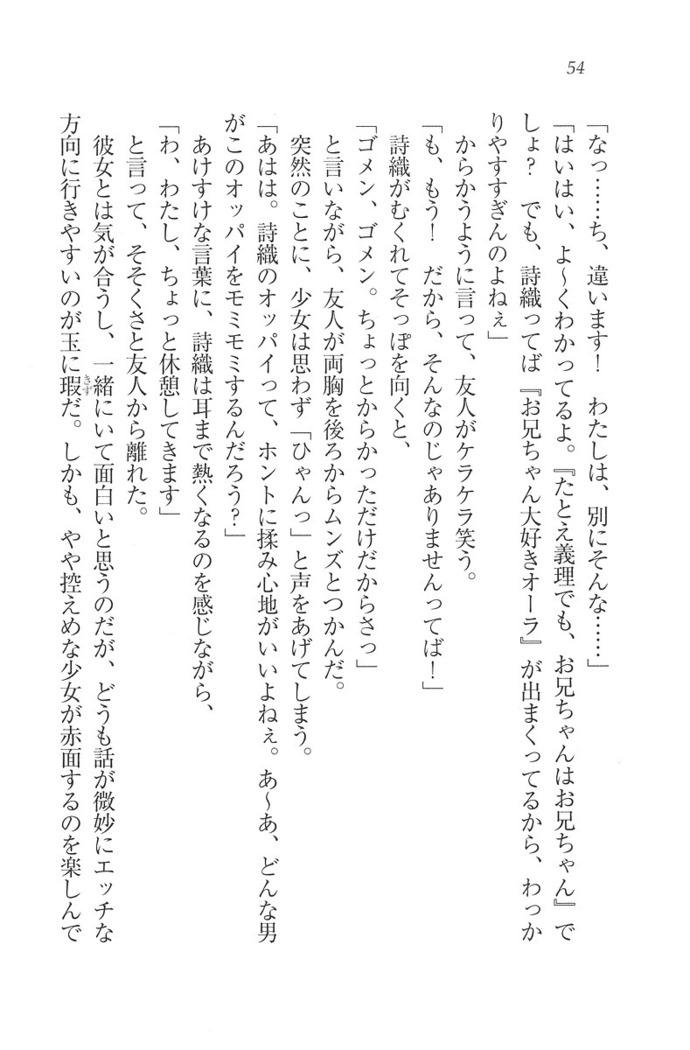 54
「なっ……ち、違います！　わたしは、別にそんな……」
「はいはい、よ～くわかってるよ。『たとえ義理でも、お兄ちゃんはお兄ちゃん』で
しょ？　でも、詩織ってば『お兄ちゃん大好きオーラ』が出まくってるから、わっか
りやすすぎんのよねぇ」
　からかうように言って、友人がケラケラ笑う。
「も、もう！　だから、そんなのじゃありませんってば！」
　詩織がむくれてそっぽを向くと、
「ゴメン、ゴメン。ちょっとからかっただけだからさっ」
　と言いながら、友人が両胸を後ろからムンズとつかんだ。
　突然のことに、少女は思わず「ひゃんっ」と声をあげてしまう。
「あはは。詩織のオッパイって、ホントに揉み心地がいいよねぇ。あ～あ、どんな男
がこのオッパイをモミモミするんだろう？」
　あけすけな言葉に、詩織は耳まで熱くなるのを感じながら、
「わ、わたし、ちょっと休憩してきます」
　と言って、そそくさと友人から離れた。
　彼女とは気が合うし、一緒にいて面白いと思うのだが、どうも話が微妙にエッチな
方向に行きやすいのが玉に瑕きずだ。しかも、やや控えめな少女が赤面するのを楽しんで